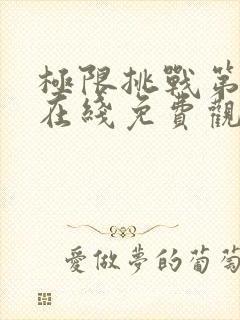 極限挑戰第
在綫免費觀
愛做夢的葡萄